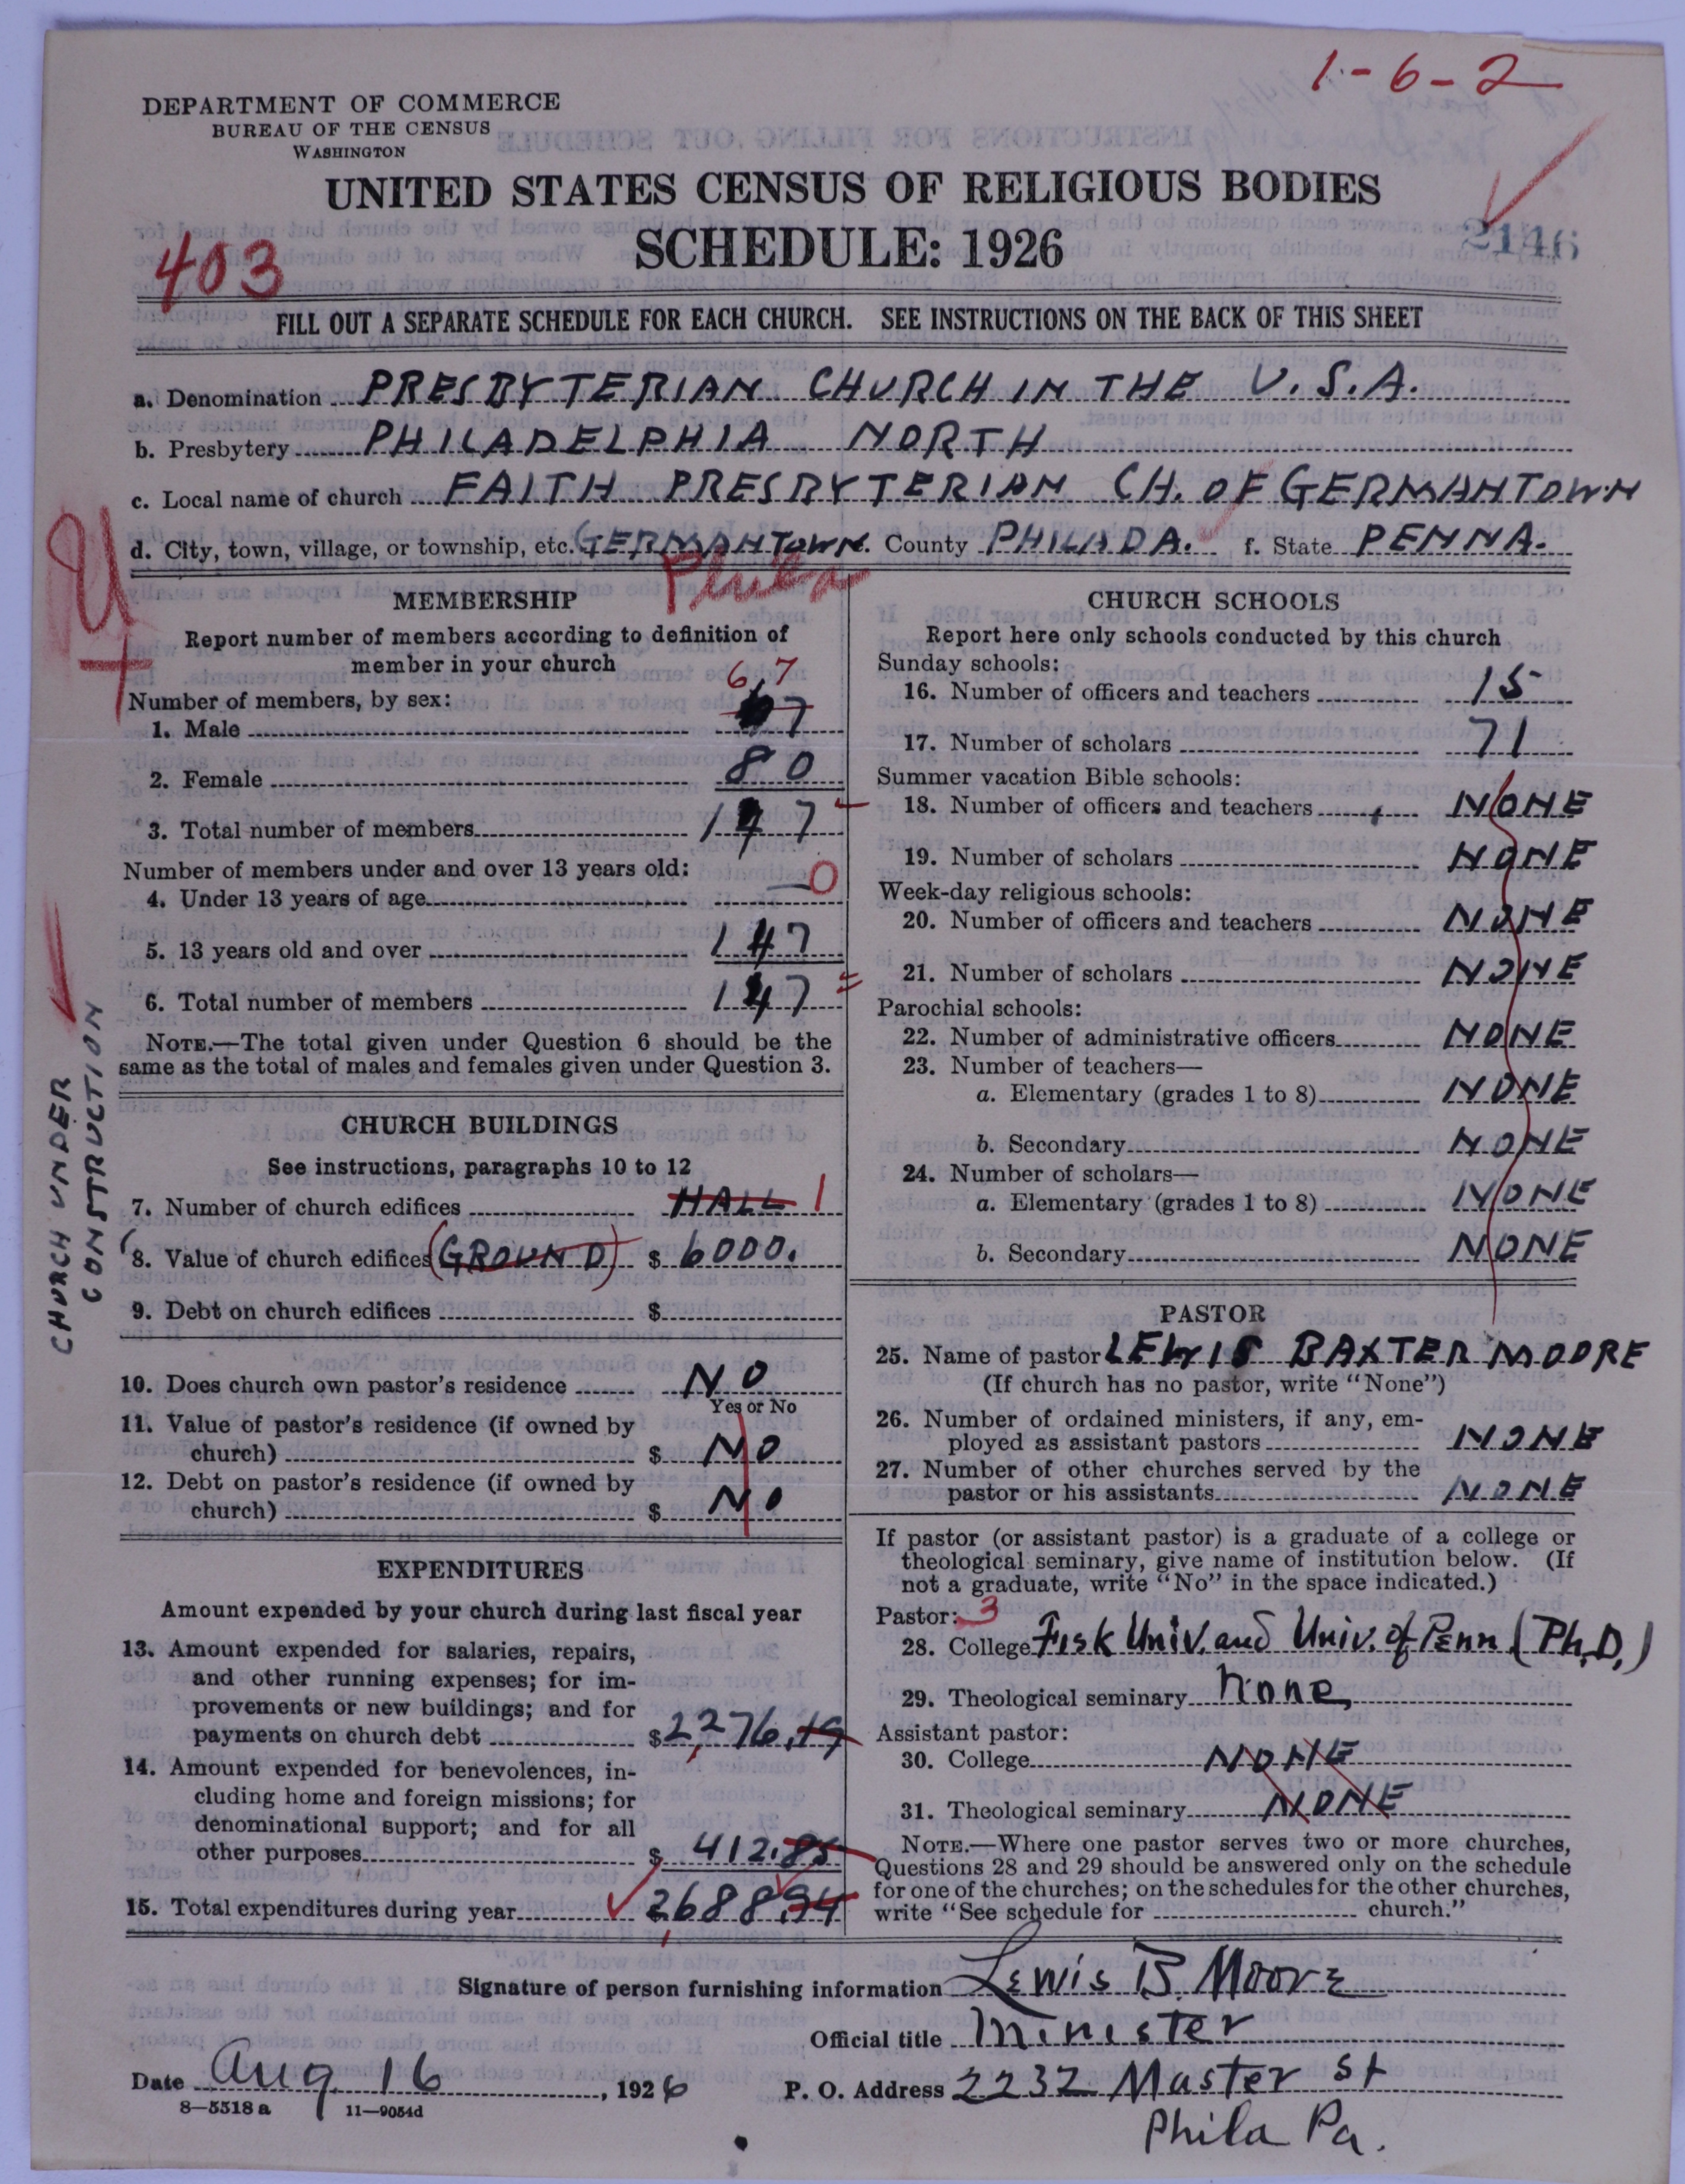 1-6-2
DEPARTMENT OF COMMERCE
BUREAU OF THE CENSUS
WASHINGTON
UNITED STATES CENSUS OF RELIGIOUS BODIES
SCHEDULE: 1926
403
2146
FILL OUT A SEPARATE SCHEDULE FOR EACH CHURCH. SEE INSTRUCTIONS ON THE BACK OF THIS SHEET
a. Denomination PRESBYTERIAN CHURCH IN THE U.S.A.
b. Presbytery PHILADELPHIA NORTH
c. Local name of church FAITH PRESBYTERIAN CH. OF GERMANTOWN
d. City, town, village, or township, etc. GERMANTOWN. County PHILADA. f. State PENNA.
Phila
MEMBERSHIP
Report number of members according to definition of
member in your church
67
Number of members, by sex:
1. Male 67
2. Female 80
3. Total number of members 147
Number of members under and over 13 years old:
4. Under 13 years of age 0
5. 13 years old and over 147
6. Total number of members 147
NOTE.—The total given under Question 6 should be the
same as the total of males and females given under Question 3.
CHURCH UNDER
CONSTRUCTION
CHURCH BUILDINGS
See instructions, paragraphs 10 to 12
7. Number of church edifices HALL 1
8. Value of church edifices (GROUND) $ 6000.
9. Debt on church edifices $
10. Does church own pastor's residence NO
Yes or No
11. Value of pastor's residence (if owned by
church) $ NO
12. Debt on pastor's residence (if owned by
church) $ NO
EXPENDITURES
Amount expended by your church during last fiscal year
13. Amount expended for salaries, repairs,
and other running expenses; for im-
provements or new buildings; and for
payments on church debt $2,276.19
14. Amount expended for benevolences, in-
cluding home and foreign missions; for
denominational support; and for all
other purposes $ 412.85
15. Total expenditures during year 2,688.94
CHURCH SCHOOLS
Report here only schools conducted by this church
Sunday schools:
16. Number of officers and teachers 15
17. Number of scholars 71
Summer vacation Bible schools:
18. Number of officers and teachers NONE
19. Number of scholars NONE
Week-day religious schools:
20. Number of officers and teachers NONE
21. Number of scholars NONE
Parochial schools:
22. Number of administrative officers NONE
23. Number of teachers—
a. Elementary (grades 1 to 8) NONE
b. Secondary NONE
24. Number of scholars—
a. Elementary (grades 1 to 8) NONE
b. Secondary NONE
PASTOR
25. Name of pastor LEWIS BAXTER MOORE
(If church has no pastor, write "None")
26. Number of ordained ministers, if any, em-
ployed as assistant pastors NONE
27. Number of other churches served by the
pastor or his assistants NONE
If pastor (or assistant pastor) is a graduate of a college or
theological seminary, give name of institution below. (If
not a graduate, write "No" in the space indicated.)
Pastor: 3
28. College Fisk Univ. and Univ. of Penn (Ph.D.)
29. Theological seminary None
Assistant pastor:
30. College NONE
31. Theological seminary NONE
NOTE.—Where one pastor serves two or more churches,
Questions 28 and 29 should be answered only on the schedule
for one of the churches; on the schedules for the other churches,
write "See schedule for church."
Signature of person furnishing information Lewis B. Moore
Official title Minister
Date Aug 16, 1926 P. O. Address 2232 Master St
8-5518 a 11-9054d
Phila Pa.